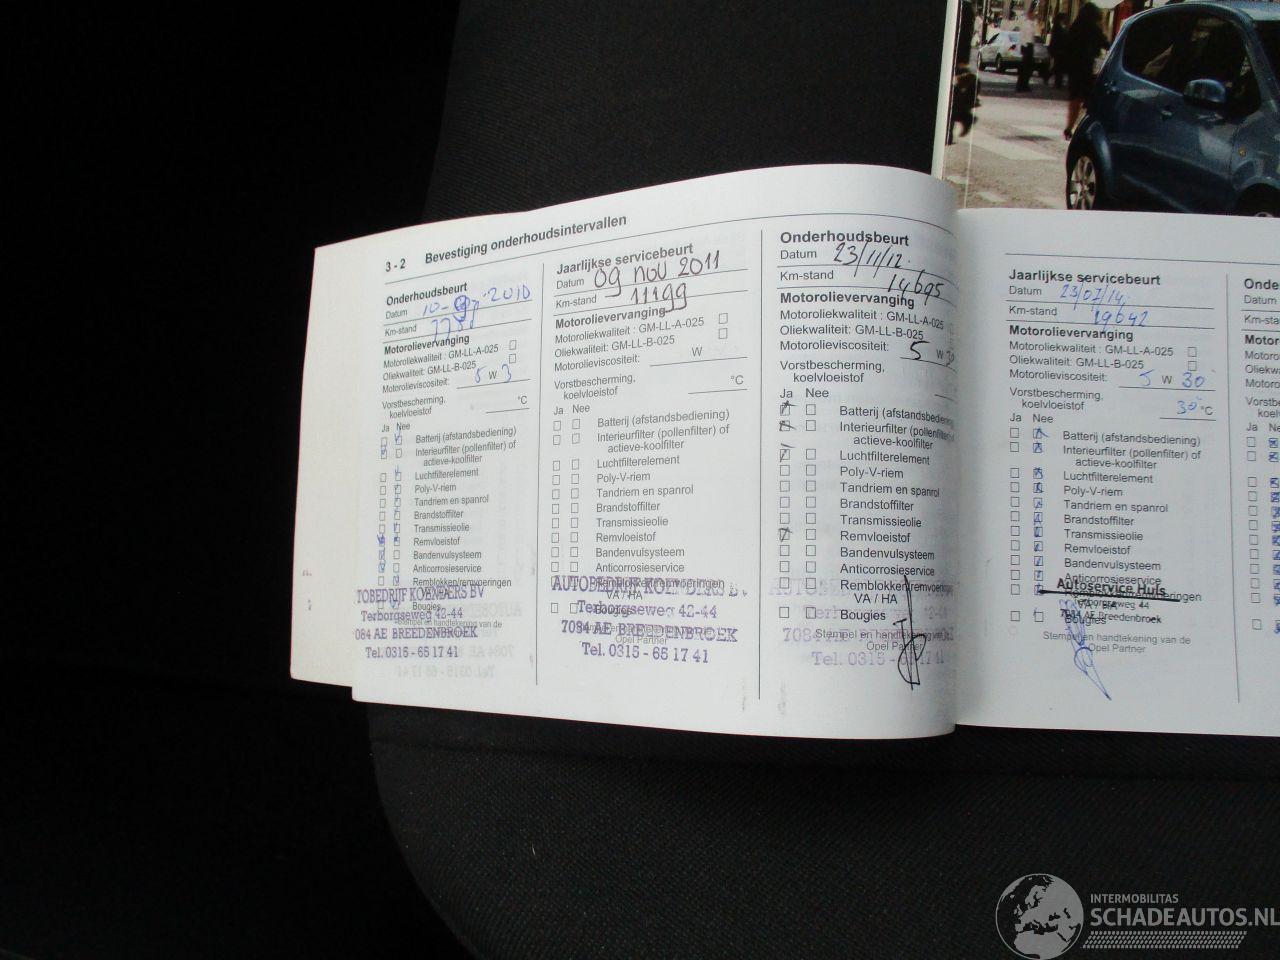 3 - 2 Bevestiging onderhoudsintervallen
Onderhoudsbeurt
Datum 2010
Km-stand
Motorolievervanging
Motoroliekwaliteit : GM-LL-A-025
Oliekwaliteit: GM-LL-B-025
Motorolieviscositeit: 5 W 3
Vorstbescherming,
koelvloeistof °C
Ja Nee
Batterij (afstandsbediening)
Interieurfilter (pollenfilter) of
actieve-koolfilter
Luchtfilterelement
Poly-V-riem
Tandriem en spanrol
Brandstoffilter
Transmissieolie
Remvloeistof
Bandenvulsysteem
Anticorrosieservice
Remblokken/remvoeringen
Bougies
TOBEDRIJF KOENDERS BV
Terborgseweg 42-44
084 AE BREEDENBROEK
Stempel en handtekening van de
Tel. 0315 - 65 17 41
Jaarlijkse servicebeurt
Datum 09 nov 2011
Km-stand 11199
Motorolievervanging
Motoroliekwaliteit : GM-LL-A-025
Oliekwaliteit: GM-LL-B-025
Motorolieviscositeit: W
Vorstbescherming,
koelvloeistof °C
Ja Nee
Batterij (afstandsbediening)
Interieurfilter (pollenfilter) of
actieve-koolfilter
Luchtfilterelement
Poly-V-riem
Tandriem en spanrol
Brandstoffilter
Transmissieolie
Remvloeistof
Bandenvulsysteem
Anticorrosieservice
Remblokken/remvoeringen
VA / HA
Bougies
AUTOBEDRIJF KOENDERS BV
Terborgseweg 42-44
7084 AE BREEDENBROEK
Tel. 0315 - 65 17 41
Onderhoudsbeurt
Datum 23/11/12
Km-stand 14695
Motorolievervanging
Motoroliekwaliteit : GM-LL-A-025
Oliekwaliteit: GM-LL-B-025
Motorolieviscositeit: 5 W 30
Vorstbescherming,
koelvloeistof
Ja Nee
Batterij (afstandsbediening)
Interieurfilter (pollenfilter) of
actieve-koolfilter
Luchtfilterelement
Poly-V-riem
Tandriem en spanrol
Brandstoffilter
Transmissieolie
Remvloeistof
Bandenvulsysteem
Anticorrosieservice
Remblokken/remvoeringen
VA / HA
Bougies
Stempel en handtekening van de
Opel Partner
Tel. 0315 - 65 17 41
Jaarlijkse servicebeurt
Datum 23/07/14
Km-stand 19642
Motorolievervanging
Motoroliekwaliteit : GM-LL-A-025
Oliekwaliteit: GM-LL-B-025
Motorolieviscositeit: 5 W 30
Vorstbescherming,
koelvloeistof 30 °C
Ja Nee
Batterij (afstandsbediening)
Interieurfilter (pollenfilter) of
actieve-koolfilter
Luchtfilterelement
Poly-V-riem
Tandriem en spanrol
Brandstoffilter
Transmissieolie
Remvloeistof
Bandenvulsysteem
Anticorrosieservice
Autoservice Huls
Terborgseweg 44
VA / HA
7084 AE Breedenbroek
Bougies
Stempel en handtekening van de
Opel Partner
Datum
Km-sta
Motor
Ja Nee
INTERMOBILITAS
SCHADEAUTOS.NL